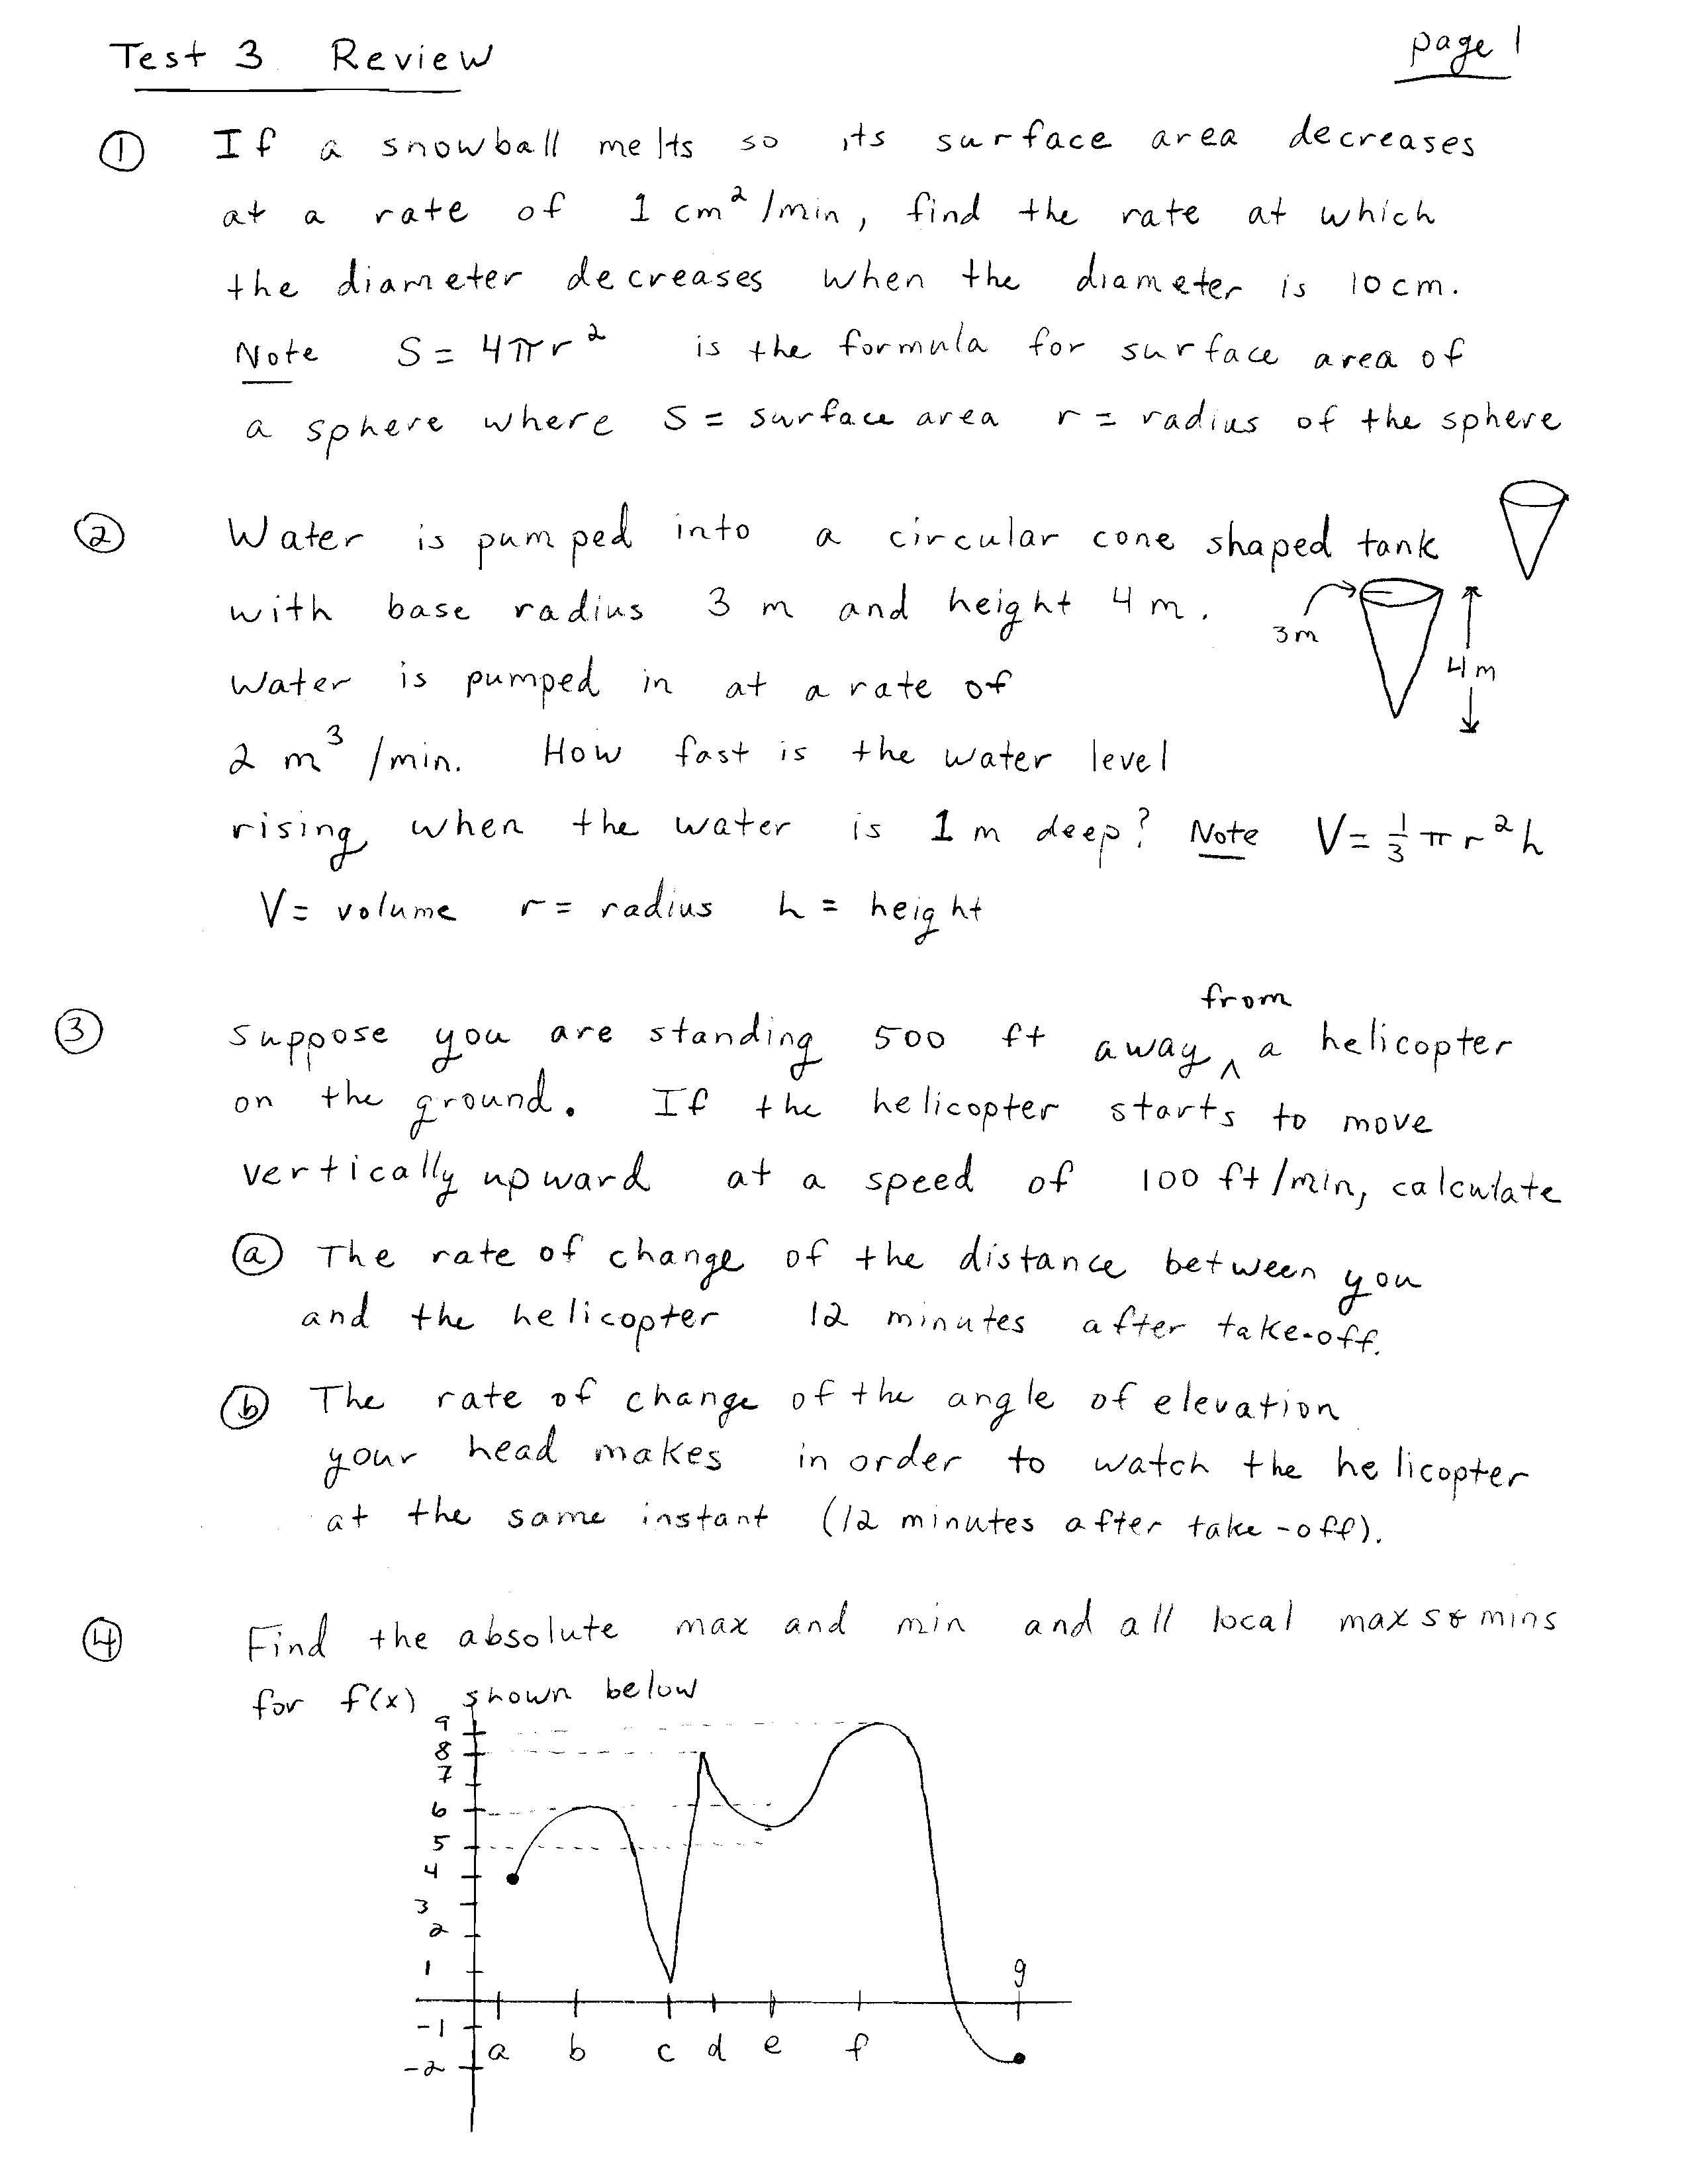 Test 3 Review
page 1
① If a snowball melts so its surface area decreases
at a rate of 1 cm² /min, find the rate at which
the diameter decreases when the diameter is 10cm.
Note S = 4πr² is the formula for surface area of
a sphere where S = surface area r = radius of the sphere
② Water is pumped into a circular cone shaped tank
with base radius 3 m and height 4 m.
3m
4m
Water is pumped in at a rate of
2 m³ /min. How fast is the water level
rising when the water is 1 m deep? Note V = 1/3 π r² h
V = volume r = radius h = height
③ Suppose you are standing 500 ft away ^ from a helicopter
on the ground. If the helicopter starts to move
vertically upward at a speed of 100 ft/min, calculate
ⓐ The rate of change of the distance between you
and the helicopter 12 minutes after take-off.
ⓑ The rate of change of the angle of elevation
your head makes in order to watch the helicopter
at the same instant (12 minutes after take-off).
④ Find the absolute max and min and all local maxs & mins
for f(x) shown below
9
8
7
6
5
4
3
2
1
-1
-2
a b c d e f g